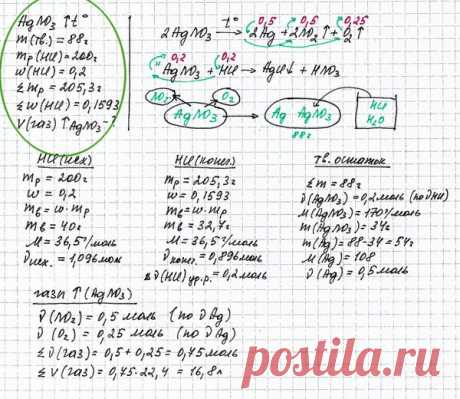 AgNO₃ ↑t°
m(тв.) = 88г
mр(HCl) = 200г
w(HCl) = 0,2
Σmр = 205,3г
Σw(HCl) = 0,1593
V(газ)↑AgNO₃ - ?
t° 0,5 0,5 0,25
2AgNO₃ → 2Ag + 2NO₂↑ + O₂↑
0,2 0,2
AgNO₃ + HCl → AgCl↓ + HNO₃
NO₂ O₂
AgNO₃ Ag AgNO₃ HCl H₂O
88г
HCl(исх)
mр = 200г
w = 0,2
mв = w·mр
mв = 40г
M = 36,5г/моль
νисх. = 1,096моль
HCl(конеч.)
mр = 205,3г
w = 0,1593
mв = w·mр
mв = 32,7г
M = 36,5г/моль
νконеч. = 0,896моль
ν(HCl)ур.р. = 0,2моль
тв. остаток
Σm = 88г
ν(AgNO₃) = 0,2моль (по νHCl)
M(AgNO₃) = 170г/моль
m(AgNO₃) = 34г
m(Ag) = 88-34 = 54г
M(Ag) = 108
ν(Ag) = 0,5моль
газы ↑(AgNO₃)
ν(NO₂) = 0,5 моль (по νAg)
ν(O₂) = 0,25 моль (по νAg)
Σν(газ) = 0,5 + 0,25 = 0,75моль
ΣV(газ) = 0,75·22,4 = 16,8л
postila.ru